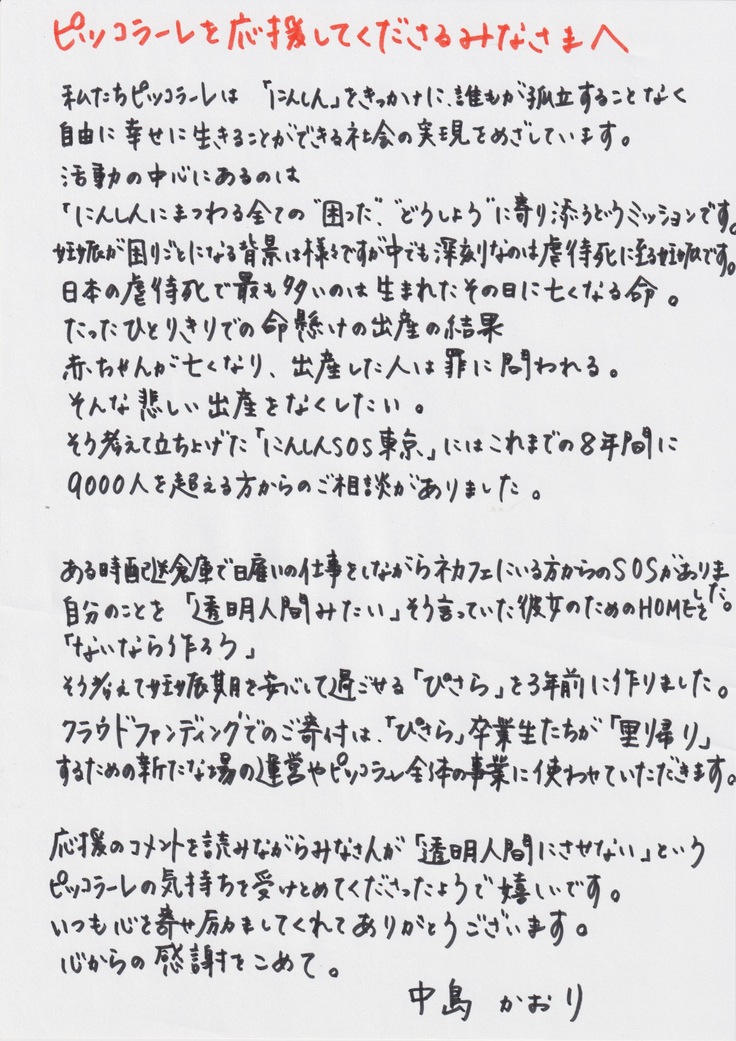 ピッコラーレを応援してくださるみなさまへ
私たちピッコラーレは「にんしん」をきっかけに、誰もが孤立することなく
自由に幸せに生きることができる社会の実現をめざしています。
活動の中心にあるのは
「にんしんにまつわる全ての"困った"、"どうしよう"に寄り添うというミッションです。
妊娠が困りごとになる背景は様々ですが中でも深刻なのは虐待死に至る妊娠です。
日本の虐待死で最も多いのは生まれたその日に亡くなる命。
たったひとりきりでの命懸けの出産の結果
赤ちゃんが亡くなり、出産した人は罪に問われる。
そんな悲しい出産をなくしたい。
そう考えて立ち上げた「にんしんSOS東京」にはこれまでの8年間に
9000人を超える方からのご相談がありました。
ある時配送倉庫で日雇いの仕事をしながらネカフェにいる方からのSOSがありました。
自分のことを「透明人間みたい」そう言っていた彼女のためのHOMEを
「ないなら作ろう」
そう考えて妊娠期を安心して過ごせる「ぴさら」を3年前に作りました。
クラウドファンディングでのご寄付は、「ぴさら」卒業生たちが「里帰り」
するための新たな場の運営やピッコラーレ全体の事業に使わせていただきます。
応援のコメントを読みながらみなさんが「透明人間にさせない」という
ピッコラーレの気持ちを受けとめてくださったようで嬉しいです。
いつも心を寄せ励ましてくれてありがとうございます。
心からの感謝をこめて。
中島 かおり